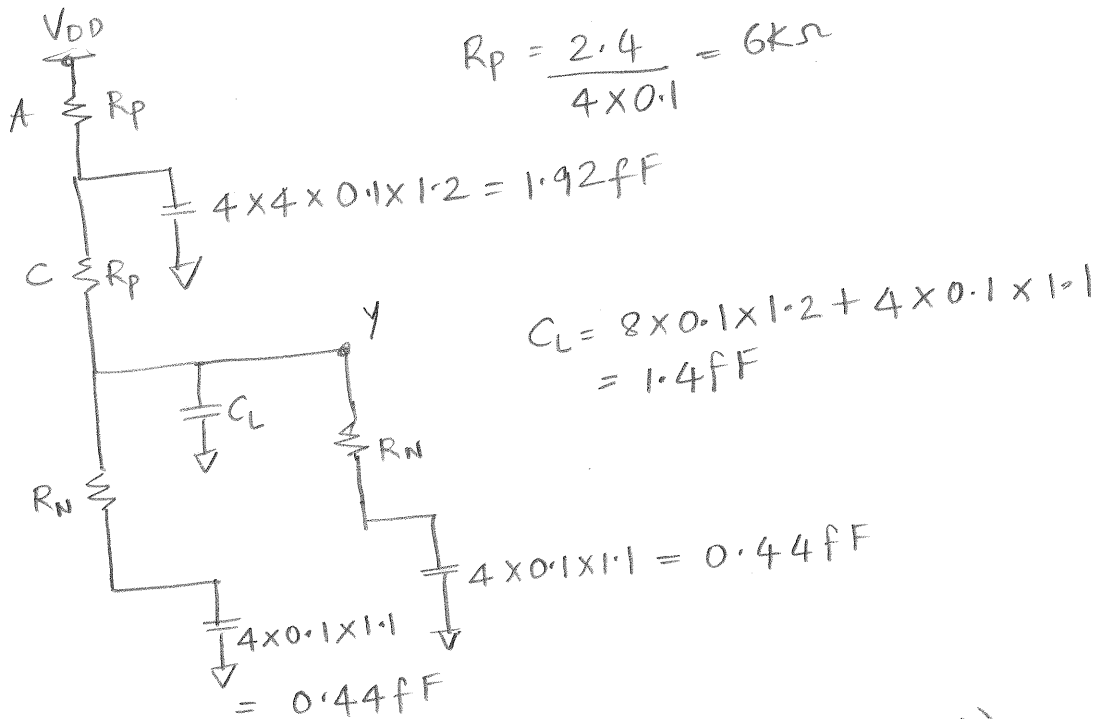 VDD
Rp = 2.4 / 4 X 0.1 = 6KΩ
A Rp
4 X 4 X 0.1 X 1.2 = 1.92fF
C Rp
Y
CL = 8 X 0.1 X 1.2 + 4 X 0.1 X 1.1
= 1.4fF
CL
RN
RN
4 X 0.1 X 1.1 = 0.44fF
4 X 0.1 X 1.1
= 0.44fF